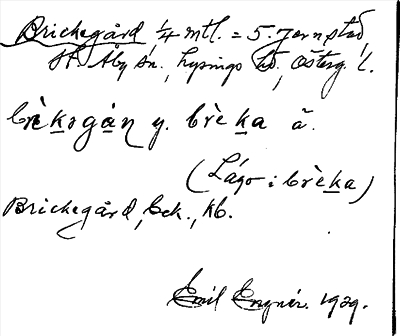 Brickegård 1/4 mtl. = 5. Jernstad,
St. Åby sn., Lysings hd, Österg. l.
brèkagán y. brèka ã.
(Lågo i brèka)
Brickegård, Eck., kb.
Emil Engnér. 1929.